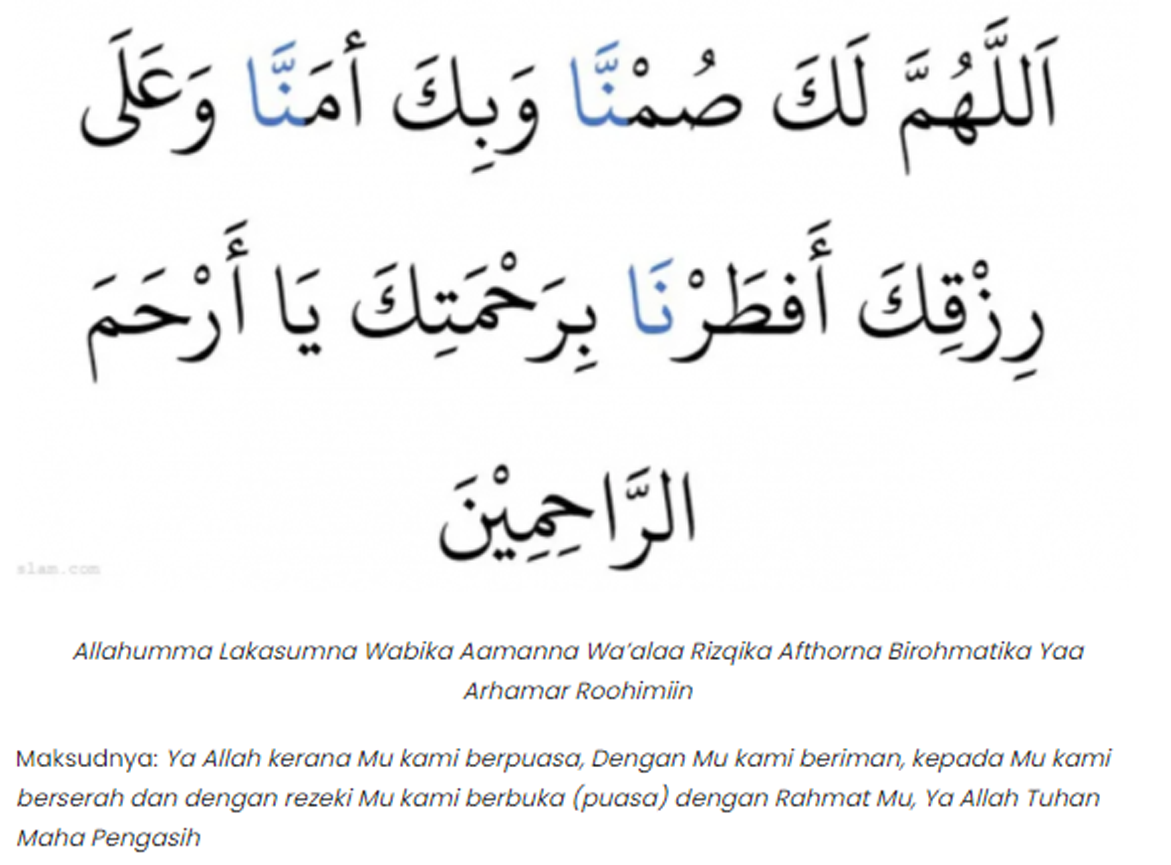 اَللَّهُمَّ لَكَ صُمْنَّا وَبِكَ أمَنَّا وَعَلَى
رِزْقِكَ أَفطَرْنَا بِرَحْمَتِكَ يَا أَرْحَمَ
الرَّاحِمِيْنَ
slam.com
Allahumma Lakasumna Wabika Aamanna Wa’alaa Rizqika Afthorna Birohmatika Yaa
Arhamar Roohimiin
Maksudnya: Ya Allah kerana Mu kami berpuasa, Dengan Mu kami beriman, kepada Mu kami
berserah dan dengan rezeki Mu kami berbuka (puasa) dengan Rahmat Mu, Ya Allah Tuhan
Maha Pengasih